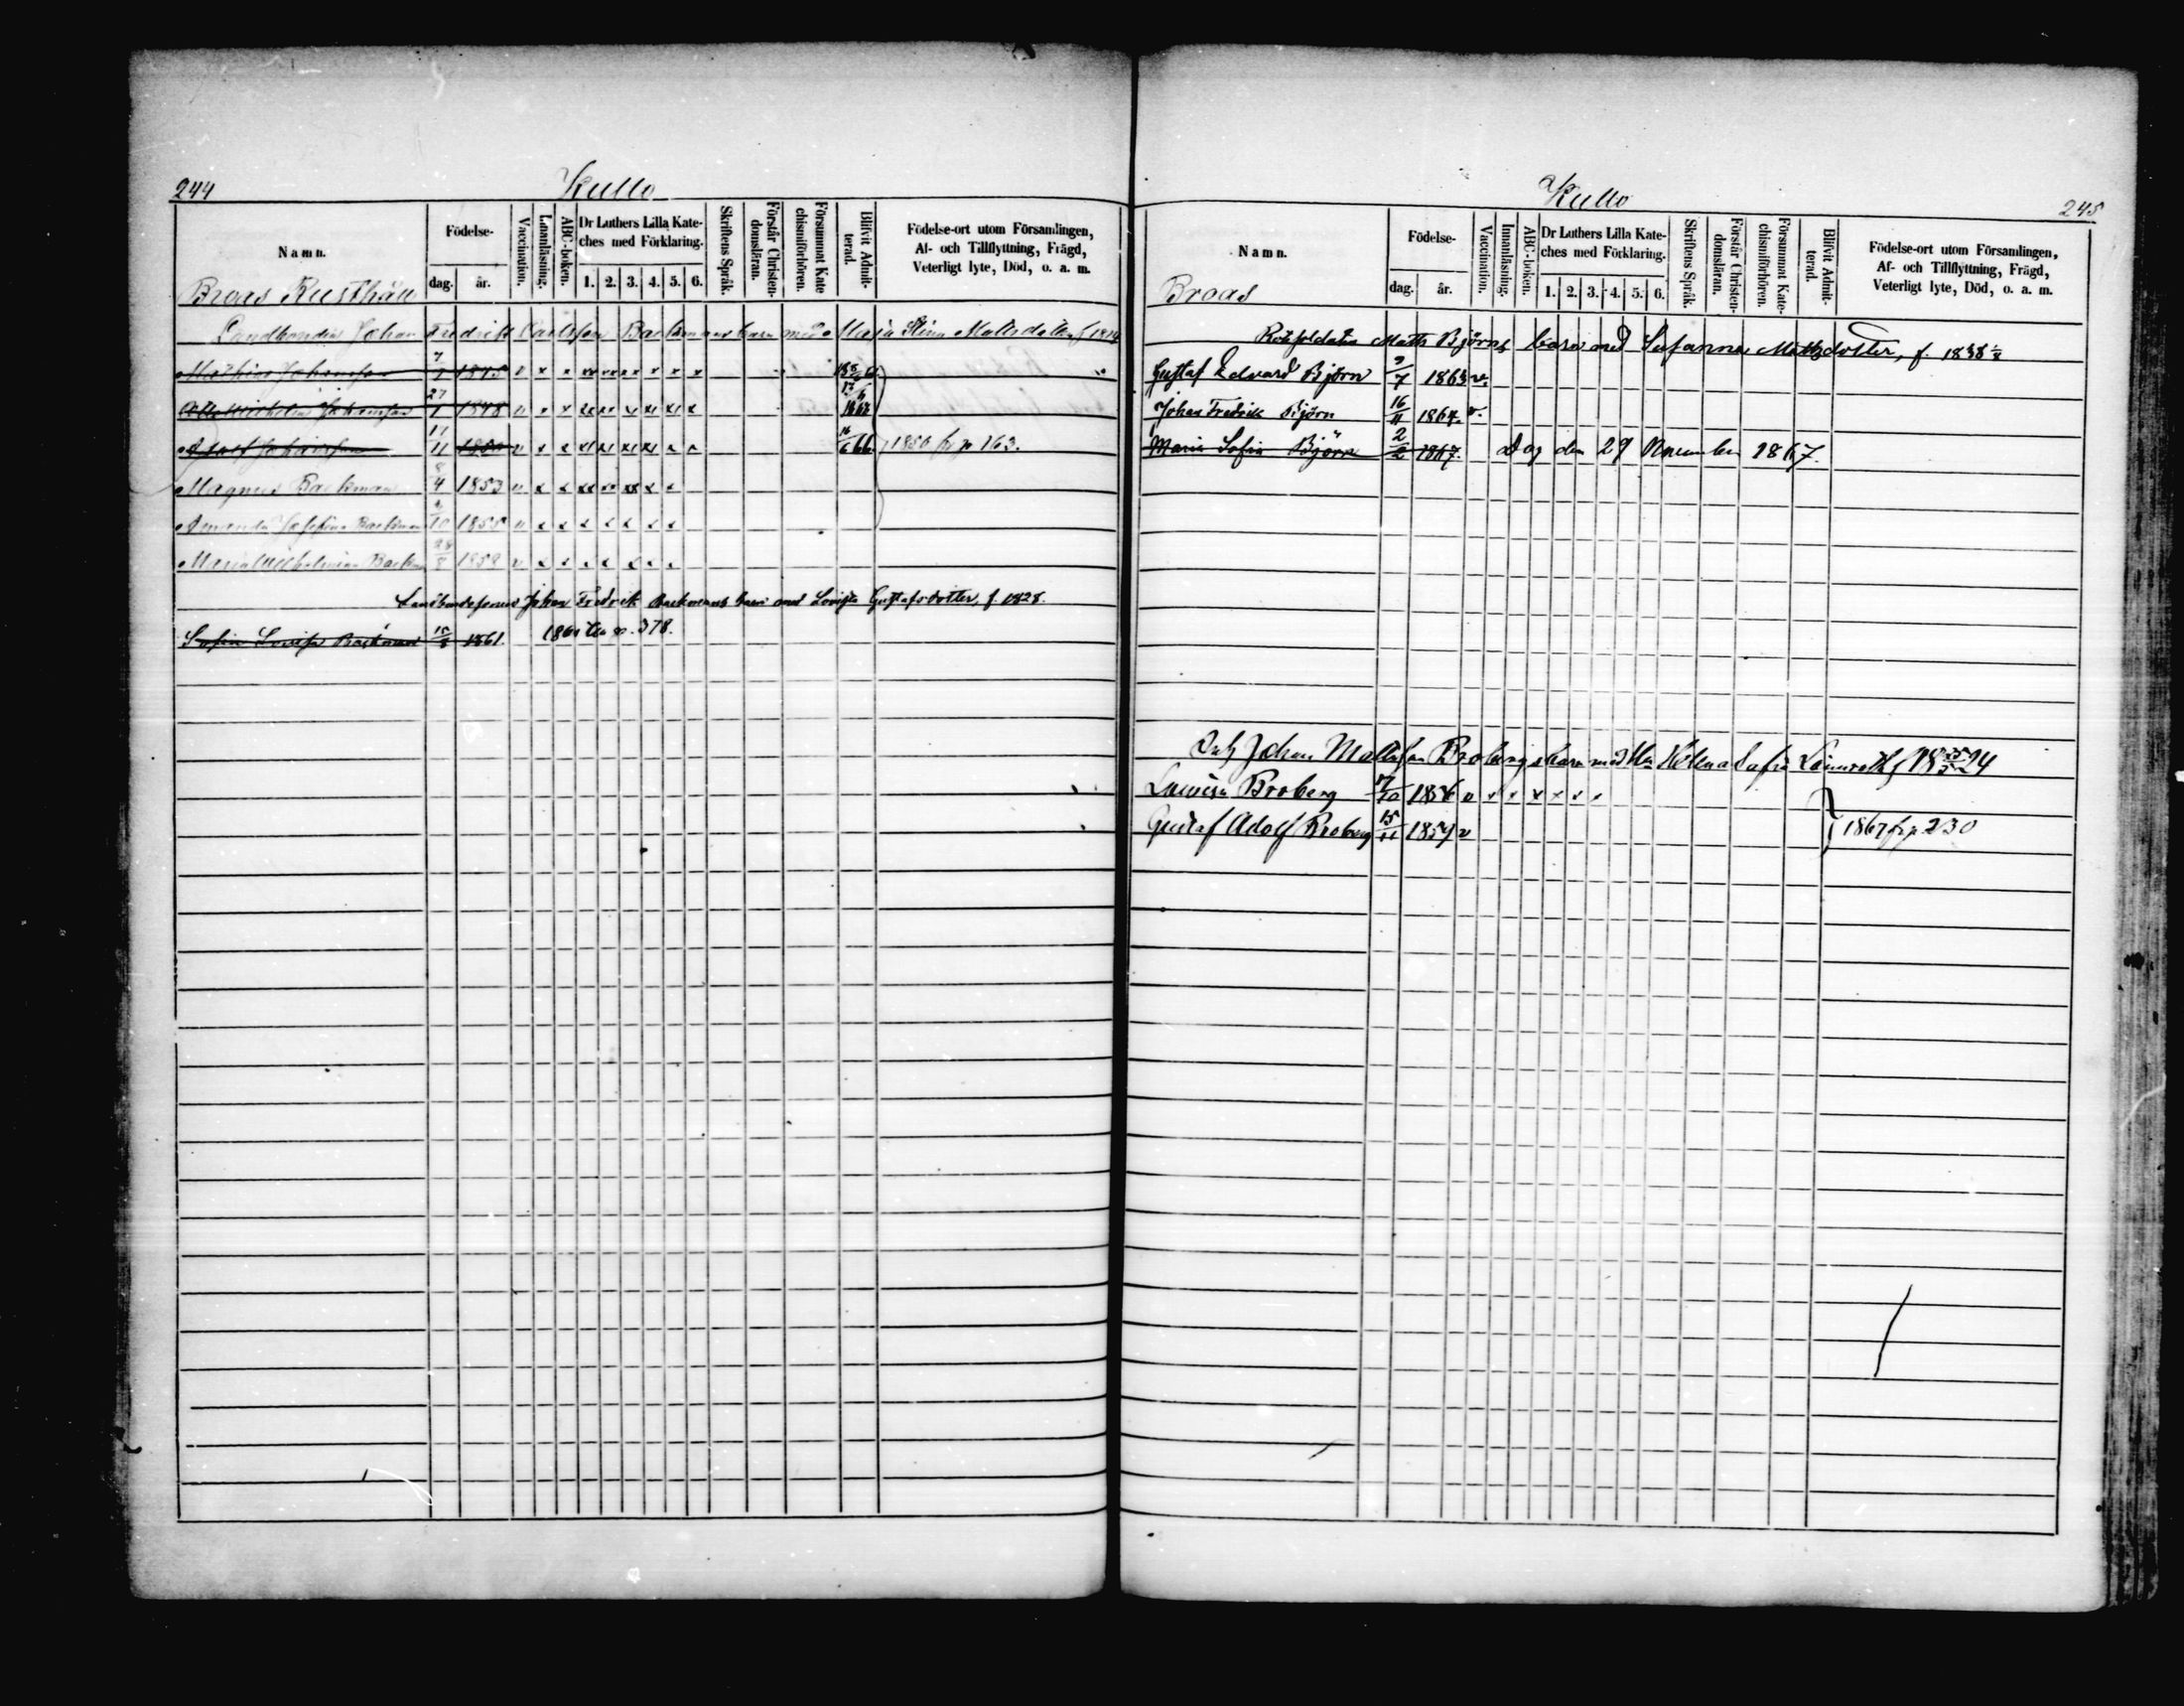 244
Kullo
Namn.
Födelse-
dag.
år.
Vaccination.
Innanläsning.
ABC-boken.
Dr Luthers Lilla Kate-
ches med Förklaring.
1. 2. 3. 4. 5. 6.
Skriftens Språk.
Förstår Christen-
domsläran.
Försummat Kate
chismiförhören.
Blifvit Admit-
terad.
Födelse-ort utom Församlingen,
Af- och Tillflyttning, Frägd,
Veterligt lyte, Död, o. a. m.
Broas Rusthåll
Landbonden Johan Fredrik Carlsson Backmans barn med Maja Stina Mattsdotter f 1814
Mathias Johansson 1845 v x x
Johansson 27/1 1848 v x x
Adolf Johansson 17/11 1850 v x x 1850 fr p 163.
Magnus Backman 8/4 1853 v x x
Amanda Josefina Backman 10 1855 v x x x x x x x
Maria Wilhelmina Backm 28/8 1859 v x x x x x x x
Landbondesonen Johan Fredrik Backmans barn med Lovisa Gustafsdotter, f. 1828.
Sofia Lovisa Backman 1861. p. 378.
Kullo
245
Namn.
Födelse-
dag.
år.
Vaccination.
Innanläsning.
ABC-boken.
Dr Luthers Lilla Kate-
ches med Förklaring.
1. 2. 3. 4. 5. 6.
Skriftens Språk.
Förstår Christen-
domsläran.
Försummat Kate-
chismiförhören.
Blifvit Admit-
terad.
Födelse-ort utom Församlingen,
Af- och Tillflyttning, Frägd,
Veterligt lyte, Död, o. a. m.
Broas
Mats Björns barn med Susanna Mattsdotter, f. 1838
Gustaf Edvard Björn 9/7 1863 v.
Johan Fredrik Björn 16/11 1864 v.
Maria Sofia Björn 2/2 1867. Dog den 29 November 1867.
Johan Mattsson Brobergs barn med Hu Helena Sofia Lönnroth f 18 25/5 24
Lovisa Broberg 7/10 1856 v x x x x x x
Gustaf Adolf Broberg 15/11 1859 v
1867 fr p 230